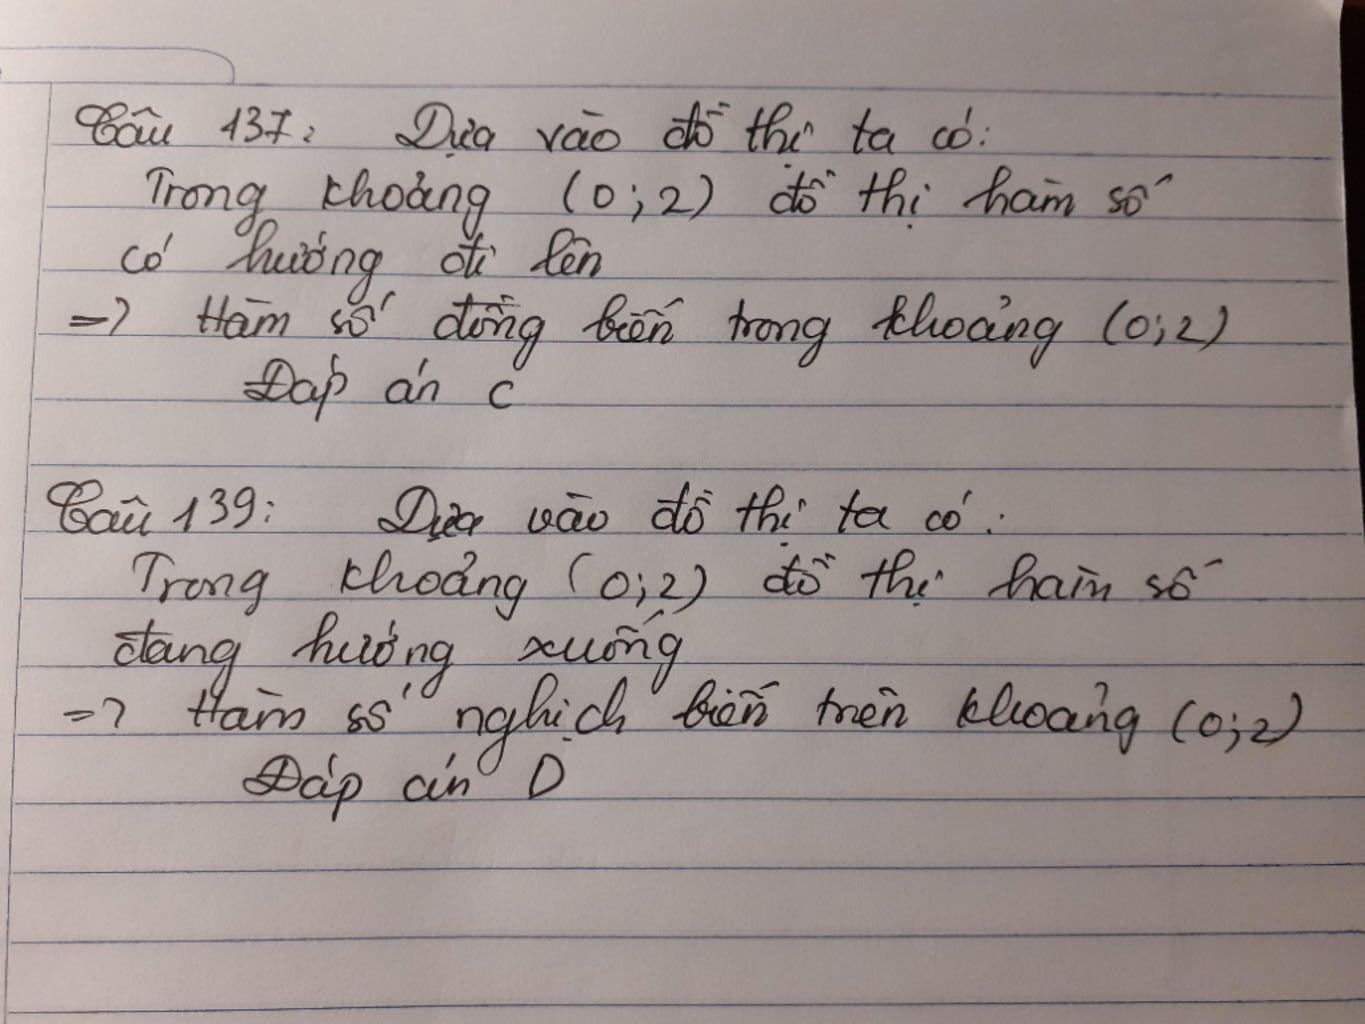 Câu 137: Dựa vào đồ thị ta có:
Trong khoảng (0;2) đồ thị hàm số
có hướng đi lên
=> Hàm số đồng biến trong khoảng (0;2)
Đáp án C
Câu 139: Dựa vào đồ thị ta có:
Trong khoảng (0;2) đồ thị hàm số
đang hướng xuống
=> Hàm số nghịch biến trên khoảng (0;2)
Đáp án D